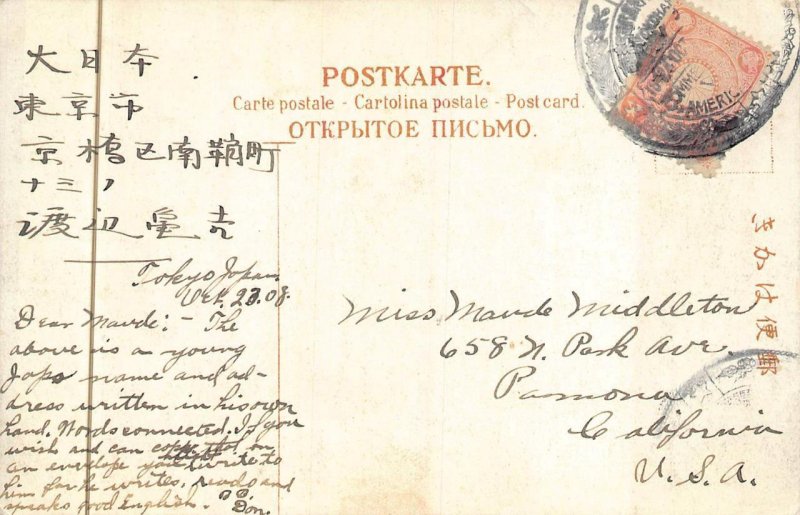 大日本
東京市
京橋区南鞘町
十三ノ
渡辺亀吉
POSTKARTE.
Carte postale - Cartolina postale - Post card.
ОТКРЫТОЕ ПИСЬМО.
Tokyo Japan.
Oct. 23. 08.
Dear Maude: - The
above is a young
Japs name and ad-
dress written in his own
hand. Words connected. If you
wish and can copy that on
an envelope you write to
him for he writes, reads and
speaks good English.
Don.
Miss Maude Middleton
658 N. Park Ave.
Pomona
California
U.S.A.
きかは便郵
AMERIC